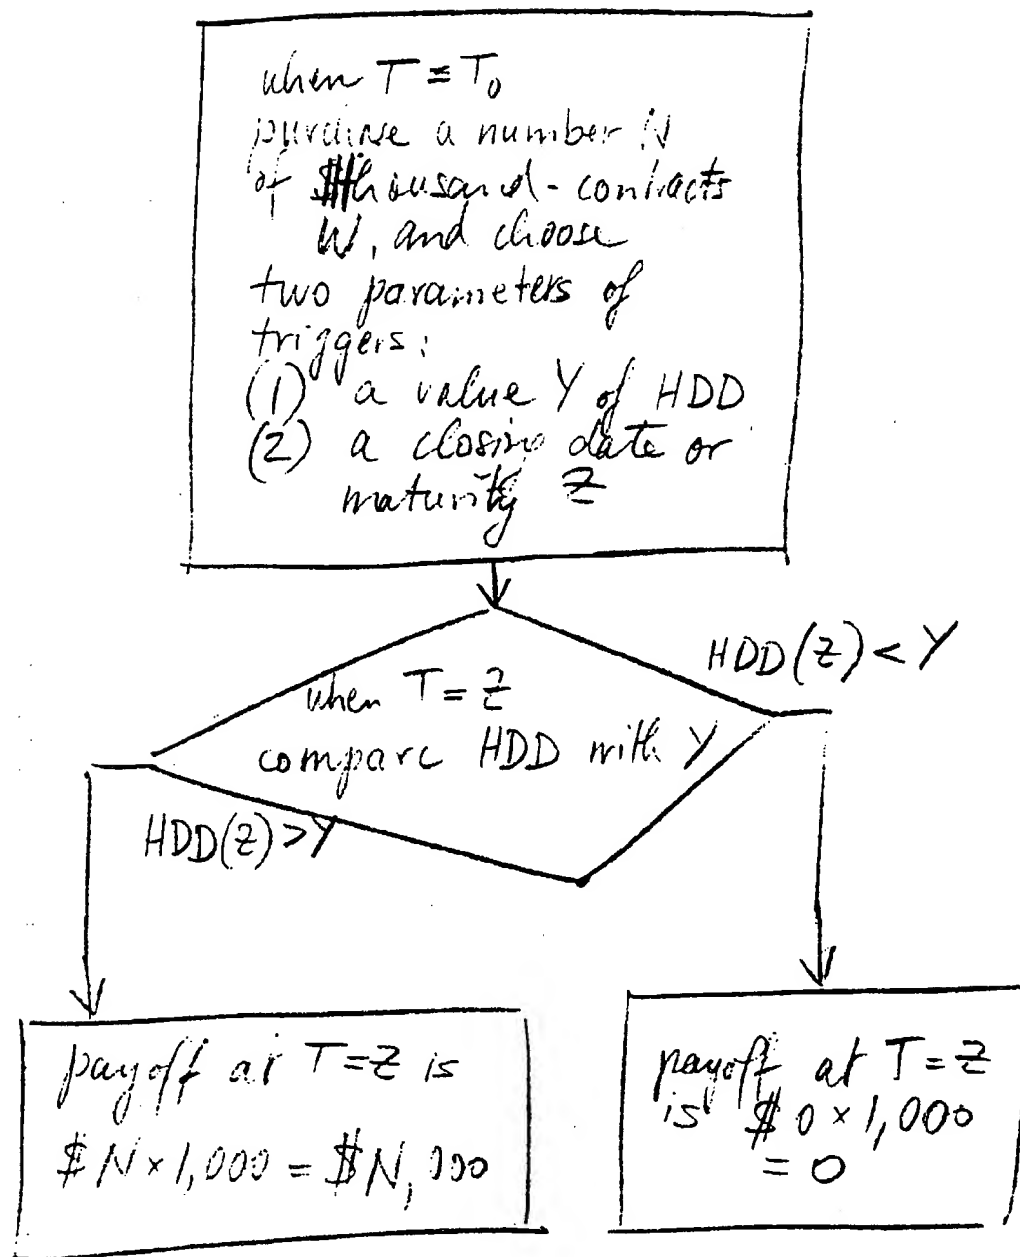 when T = T₀
purchase a number N
of $thousand-contracts
W, and choose
two parameters of
triggers:
(1) a value Y of HDD
(2) a closing date or
maturity Z
HDD(Z) < Y
when T = Z
compare HDD with Y
HDD(Z) > Y
payoff at T = Z is
$ N × 1,000 = $N, 000
payoff at T = Z
is $ 0 × 1,000
= 0